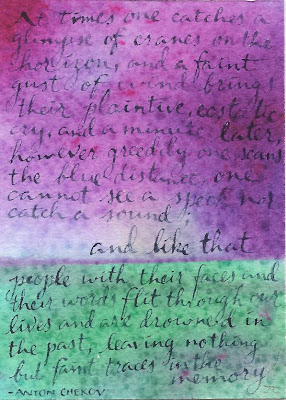 At times one catches a
glimpse of cranes on the
horizon, and a faint
gust of wind brings
their plaintive, ecstatic
cry, and a minute later,
however greedily one scans
the blue distance, one
cannot see a speck nor
catch a sound;
and like that
people with their faces and
their words flit through our
lives and are drowned in
the past, leaving nothing
but faint traces in the
memory
- ANTON CHEKOV